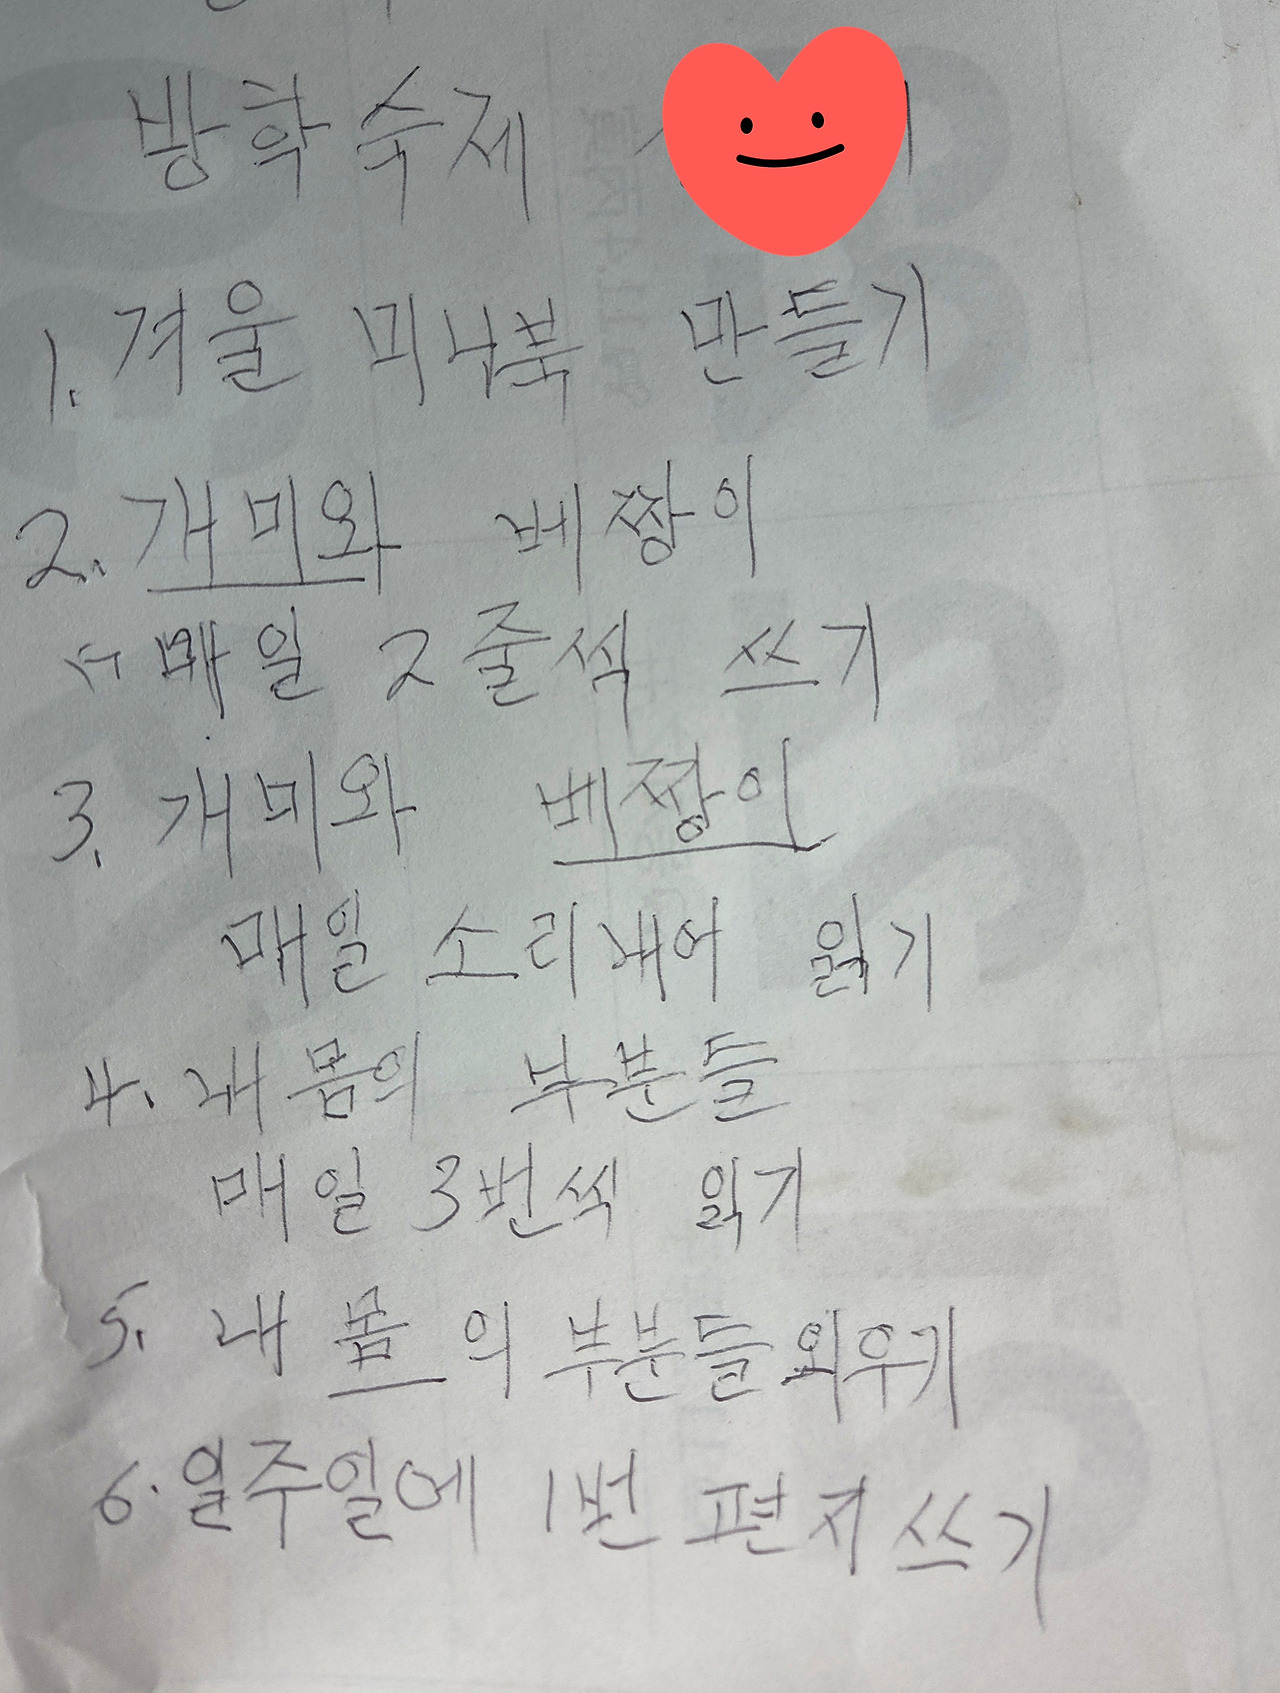 방학숙제
1. 겨울 미니북 만들기
2. 개미와 베짱이
매일 2줄씩 쓰기
3. 개미와 베짱이
매일 소리내어 읽기
4. 내 몸의 부분들
매일 3번씩 읽기
5. 내 몸의 부분들 외우기
6. 일주일에 1번 편지쓰기